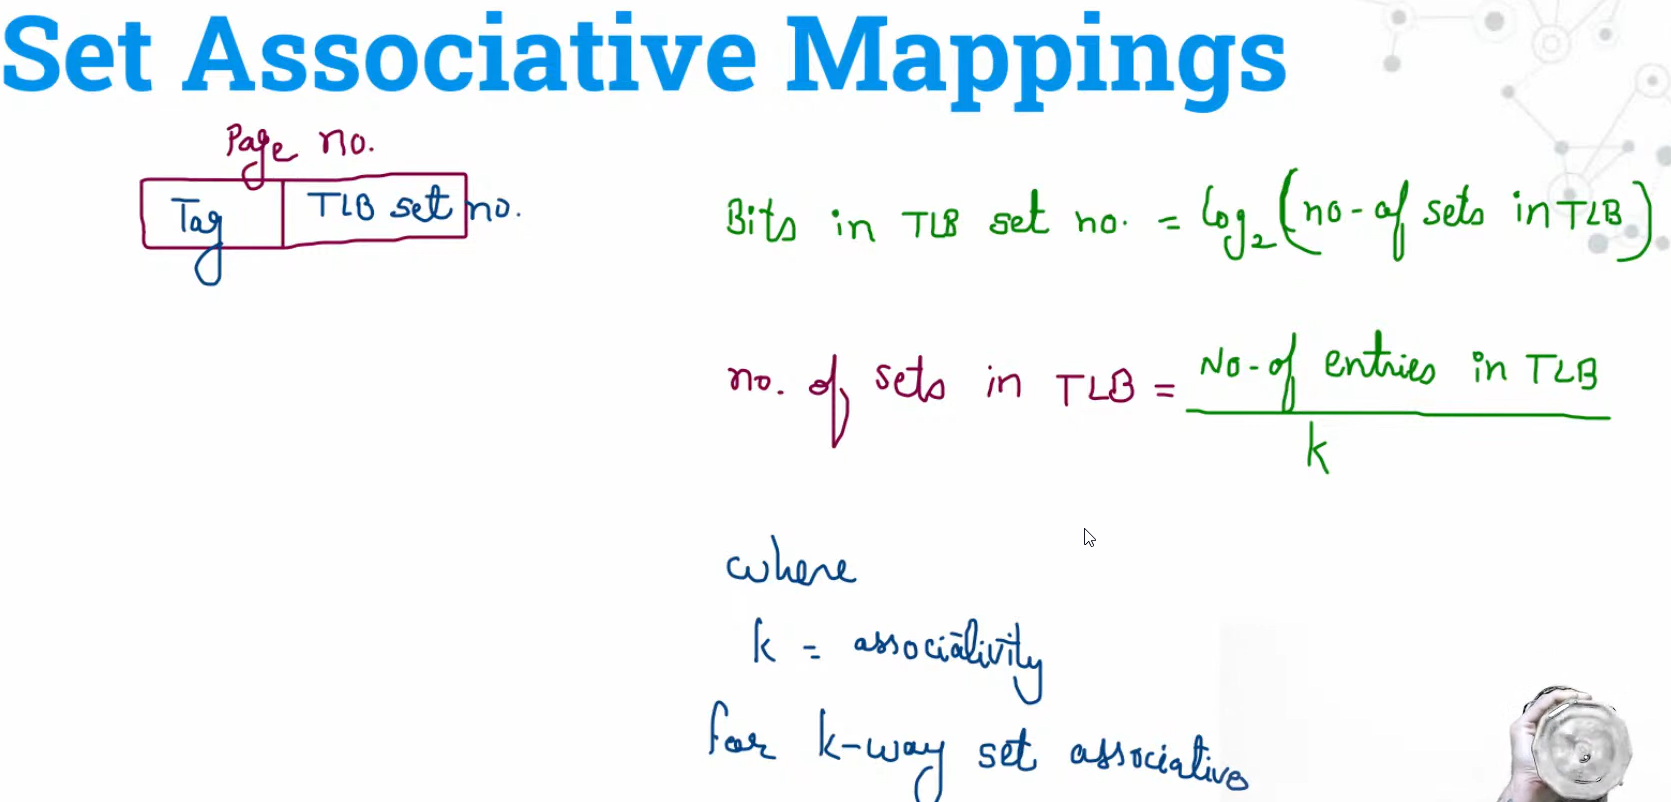 Set Associative Mappings
Page no.
Tag TLB set no.
Bits in TLB set no. = log2 (no-of sets in TLB)
no. of sets in TLB = No-of entries in TLB
k
where
k = associativity
for k-way set associative